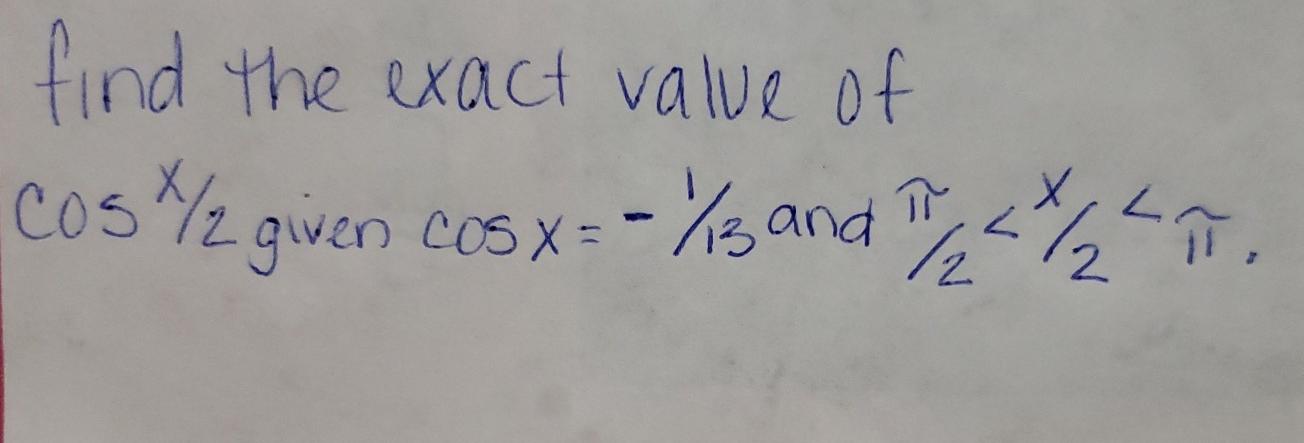 find the exact value of
cos x/2 given cos x = - 1/13 and π/2 < x/2 < π.